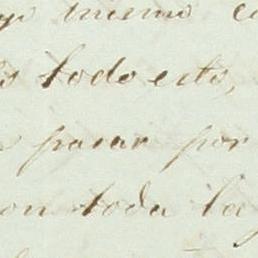 mismo
todo esto,
pasar por
con toda la